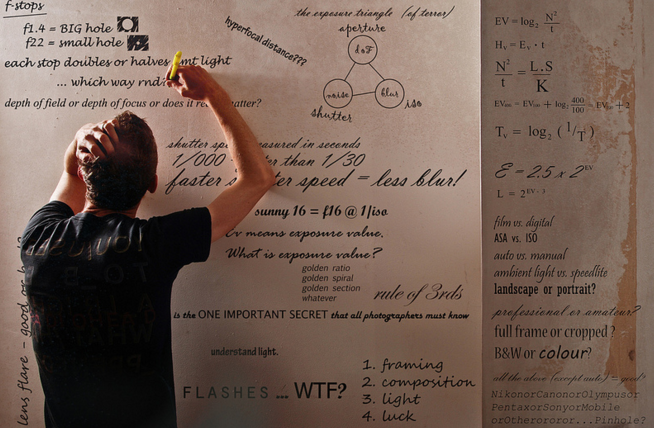 f-stops
f1.4 = BIG hole
f22 = small hole
each stop doubles or halves amt light
... which way rnd?
depth of field or depth of focus or does it matter?
hyperfocal distance???
the exposure triangle (of terror)
aperture
doF
noise
blur
shutter
iso
shutter measured in seconds
1/000 than 1/30
faster speed = less blur!
sunny 16 = f16 @ 1/iso
Ev means exposure value.
What is exposure value?
golden ratio
golden spiral
golden section
whatever
rule of 3rds
is the ONE IMPORTANT SECRET that all photographers must know
understand light.
FLASHES ... WTF?
1. framing
2. composition
3. light
4. luck
lens flare - good or
EV = log₂ N²/t
Hᵥ = Eᵥ · t
N²/t = L.S/K
+ log₂ 400/100 =
Tᵥ = log₂ (1/T)
E = 2.5 x 2^EV
L = 2^EV-3
film vs. digital
ASA vs. ISO
auto vs. manual
ambient light vs. speedlite
landscape or portrait?
professional or amateur?
full frame or cropped?
B&W or colour?
all the above (except auto) = good?
NikonorCanonorOlympusor
PentaxorSonyorMobile
orOtherororor...Pinhole?